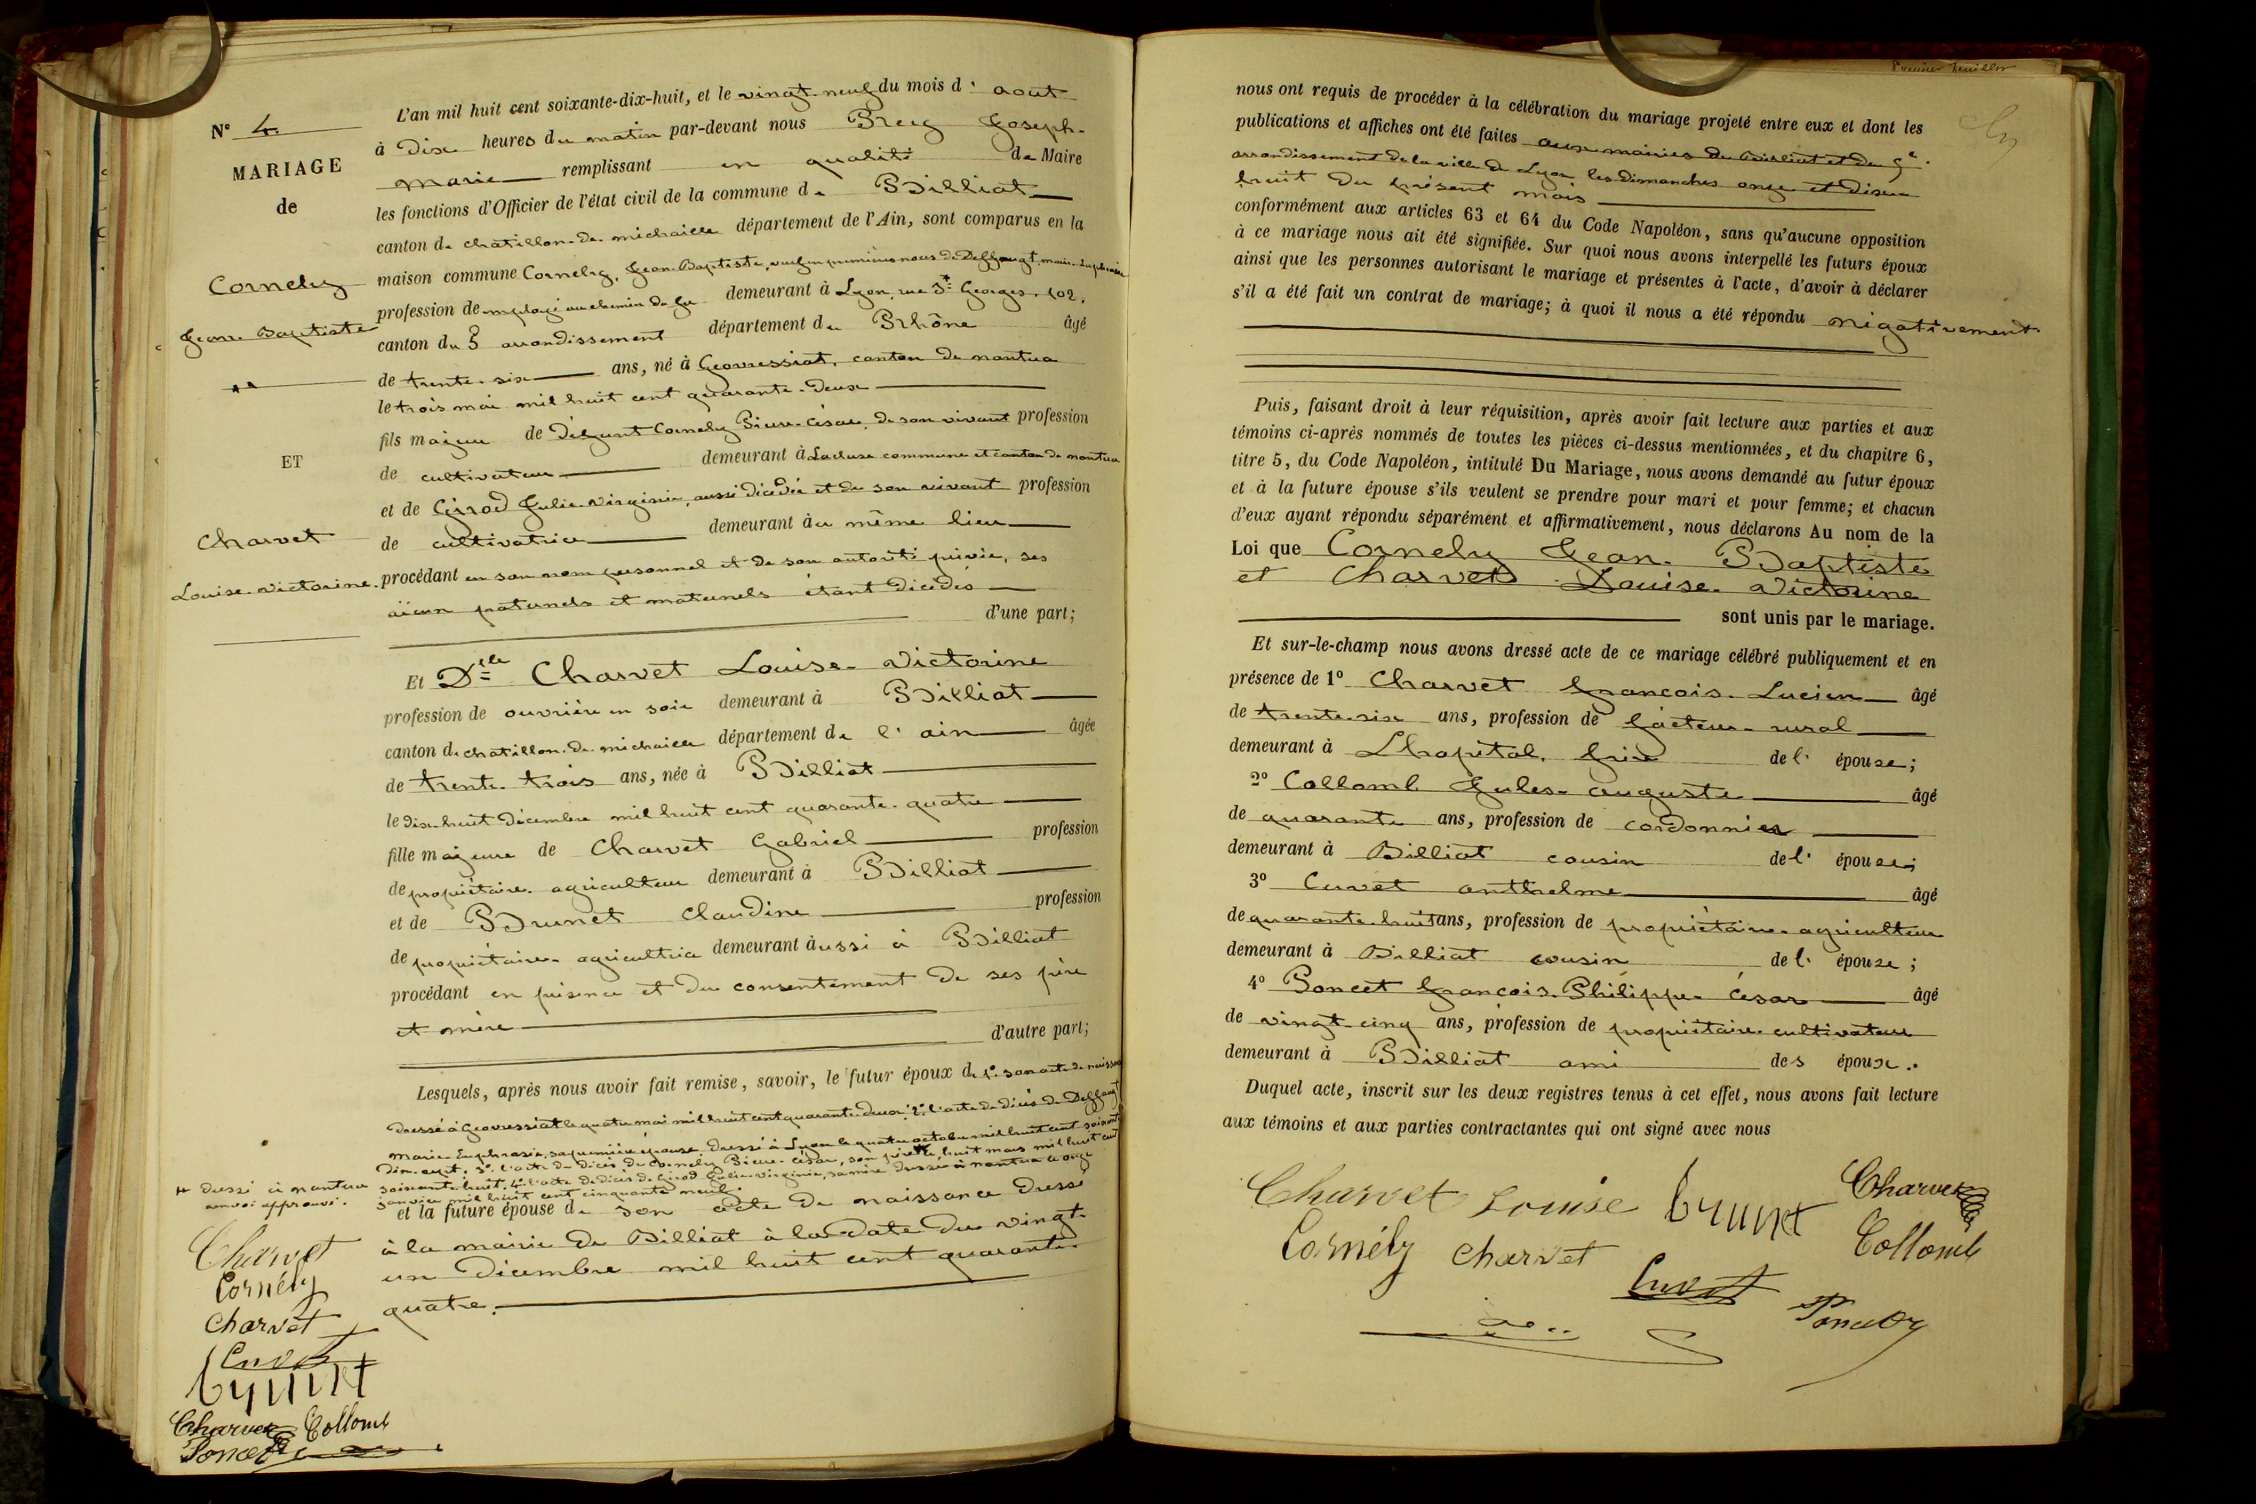 N° 4.
MARIAGE
de
Cornely
Jean-Baptiste
ET
Charvet
Louise-Victorine.
L'an mil huit cent soixante-dix-huit, et le vingt-neuf du mois d'aout
à dix heures du matin par-devant nous Breig Joseph-
Marie remplissant en qualité de Maire
les fonctions d'Officier de l'état civil de la commune de Billiat
canton de chatillon-de-michaille département de l'Ain, sont comparus en la
maison commune Cornely, Jean-Baptiste, veuf en premières noces de Deffaugt, marie-Euphrasie
profession de employé au chemin de fer demeurant à Lyon, rue St Georges, 102,
canton du 5e arrondissement département du Rhône âgé
de trente-six ans, né à Geovressiat, canton de nantua
le trois mai mil huit cent quarante-deux
fils majeur de défunt Cornely Pierre-César, de son vivant profession
de cultivateur demeurant à Lacluse commune et canton de nantua
et de Girod Julie-Virginie, aussi décédée et de son vivant profession
de cultivatrice demeurant au même lieu
procédant en son nom personnel et de son autorité privée, ses
aïeux paternels et maternels étant décédés
d'une part;
Et Dlle Charvet Louise-Victorine
profession de ouvrière en soie demeurant à Billiat
canton de chatillon-de-michaille département de l'ain âgée
de trente-trois ans, née à Billiat
le dix-huit décembre mil huit cent quarante-quatre
fille majeure de Charvet Gabriel profession
de propriétaire-agriculteur demeurant à Billiat
et de Brunet Claudine profession
de propriétaire-agricultrice demeurant aussi à Billiat
procédant en présence et du consentement de ses père
et mère
d'autre part;
Lesquels, après nous avoir fait remise, savoir, le futur époux de 1° son acte de naissance
dressé à Geovressiat le quatre mai mil huit cent quarante-deux; 2° l'acte de décès de Deffaugt
Marie-Euphrasie, sa première épouse, dressé à Lyon le quatre octobre mil huit cent soixante
dix-sept, 3° l'acte de décès de Cornely Pierre-César, son père, # le huit mars mil huit cent
soixante-huit, 4° l'acte de décès de Girod Julie-Virginie, sa mère dressé à nantua le onze
janvier mil huit cent cinquante neuf.
et la future épouse de son acte de naissance dressé
à la mairie de Billiat à la date du vingt-
un décembre mil huit cent quarante-
quatre.
# dressé à nantua
renvoi approuvé.
Charvet
Cornély
Charvet
Cuvet
brunet
Charvet Collomb
Poncet
nous ont requis de procéder à la célébration du mariage projeté entre eux et dont les
publications et affiches ont été faites aux mairies de Billiat et du 5e
arrondissement de la ville de Lyon les dimanches onze et dix-
huit du présent mois
conformément aux articles 63 et 64 du Code Napoléon, sans qu'aucune opposition
à ce mariage nous ait été signifiée. Sur quoi nous avons interpellé les futurs époux
ainsi que les personnes autorisant le mariage et présentes à l'acte, d'avoir à déclarer
s'il a été fait un contrat de mariage; à quoi il nous a été répondu négativement
Puis, faisant droit à leur réquisition, après avoir fait lecture aux parties et aux
témoins ci-après nommés de toutes les pièces ci-dessus mentionnées, et du chapitre 6,
titre 5, du Code Napoléon, intitulé Du Mariage, nous avons demandé au futur époux
et à la future épouse s'ils veulent se prendre pour mari et pour femme; et chacun
d'eux ayant répondu séparément et affirmativement, nous déclarons Au nom de la
Loi que Cornely Jean-Baptiste
et Charvet Louise-Victorine
sont unis par le mariage.
Et sur-le-champ nous avons dressé acte de ce mariage célébré publiquement et en
présence de 1° Charvet François-Lucien âgé
de trente-six ans, profession de facteur-rural
demeurant à Lhopital, frère de l'épouse;
2° Collomb Jules-auguste âgé
de quarante ans, profession de cordonnier
demeurant à Billiat cousin de l'épouse;
3° Cuvet anthelme âgé
de quarante-huit ans, profession de propriétaire-agriculteur
demeurant à Billiat cousin de l'épouse;
4° Poncet François-Philippe-César âgé
de vingt-cinq ans, profession de propriétaire-cultivateur
demeurant à Billiat ami des époux.
Duquel acte, inscrit sur les deux registres tenus à cet effet, nous avons fait lecture
aux témoins et aux parties contractantes qui ont signé avec nous
Charvet Louise brunet Charvet
Cornély Charvet Collomb
Cuvet Poncet